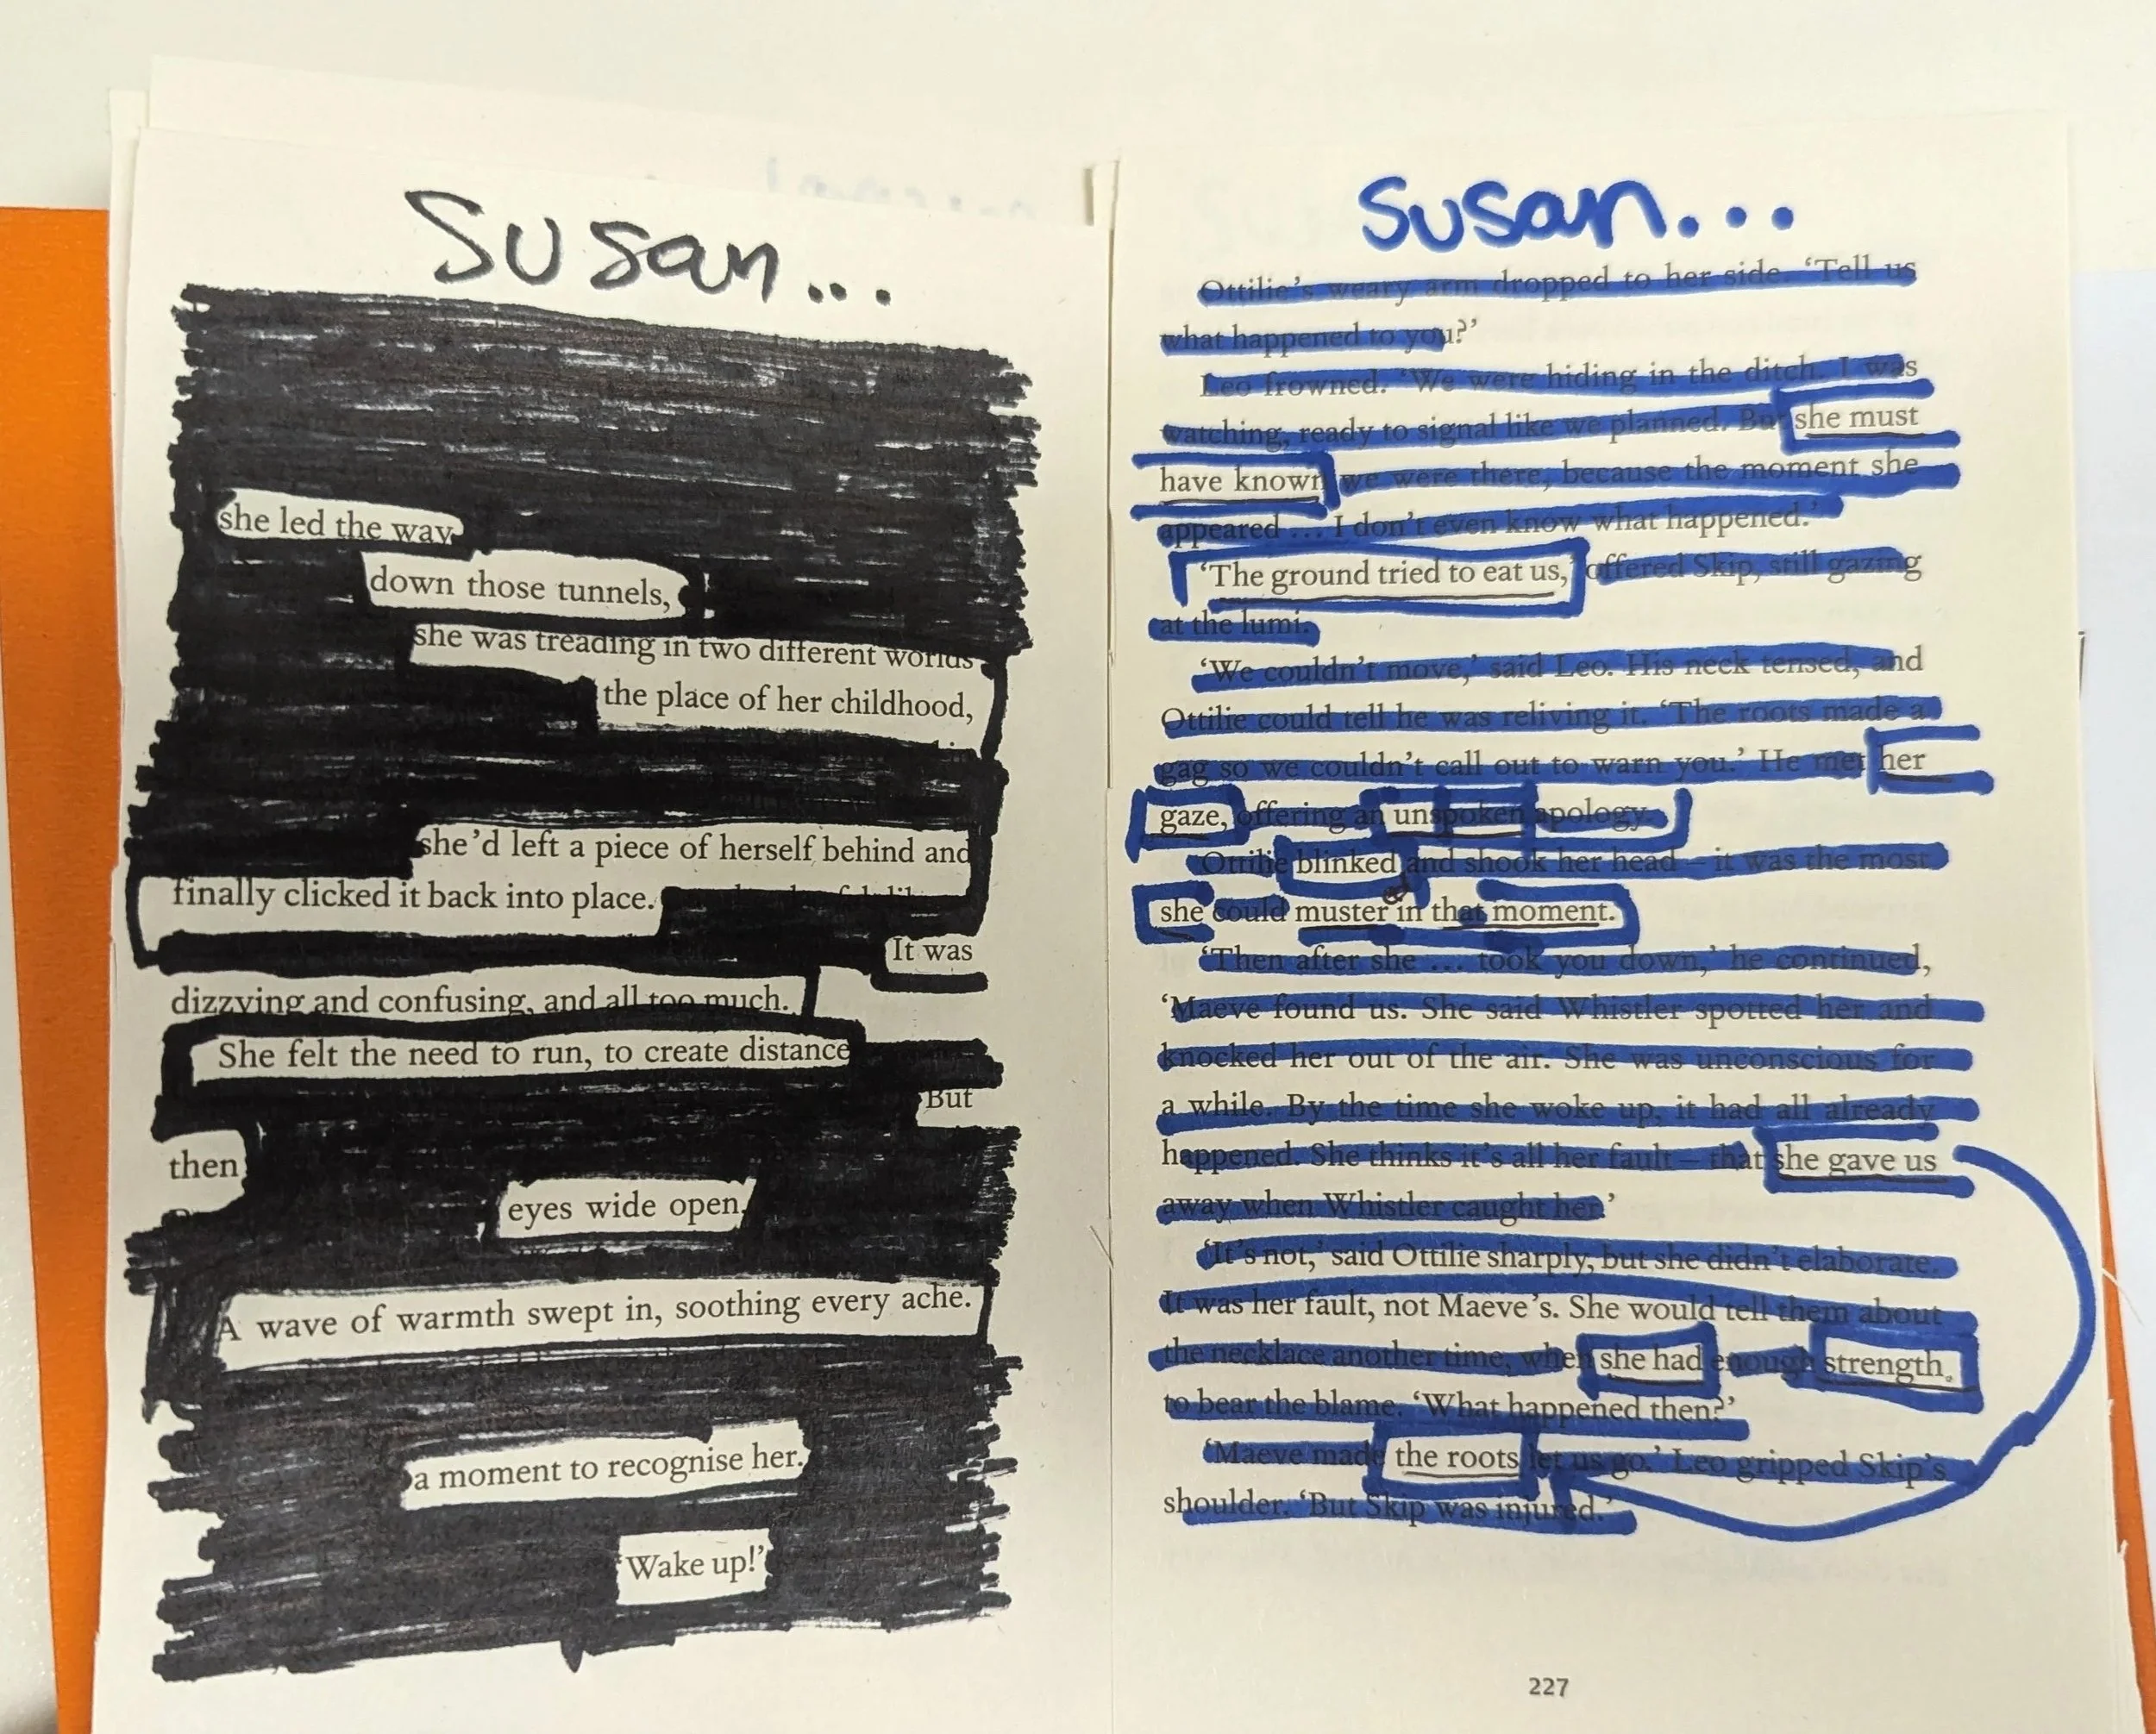 Susan...
she led the way
down those tunnels,
she was treading in two different worlds
the place of her childhood,
she'd left a piece of herself behind and
finally clicked it back into place.
It was
dizzying and confusing, and all too much.
She felt the need to run, to create distance
But
then
eyes wide open.
A wave of warmth swept in, soothing every ache.
a moment to recognise her.
Wake up!'
Susan...
Ottilie's weary arm dropped to her side. 'Tell us
what happened to you?'
Leo frowned. 'We were hiding in the ditch. I was
watching, ready to signal like we planned. But she must
have known we were there, because the moment she
appeared ... I don't even know what happened.'
'The ground tried to eat us,' offered Skip, still gazing
at the lumi.
'We couldn't move,' said Leo. His neck tensed, and
Ottilie could tell he was reliving it. 'The roots made a
gag so we couldn't call out to warn you.' He met her
gaze, offering an unspoken apology.
Ottilie blinked and shook her head – it was the most
she could muster ed in that moment.
'Then after she ... took you down,' he continued,
'Maeve found us. She said Whistler spotted her and
knocked her out of the air. She was unconscious for
a while. By the time she woke up, it had all already
happened. She thinks it's all her fault – that she gave us
away when Whistler caught her.'
'It's not,' said Ottilie sharply, but she didn't elaborate.
It was her fault, not Maeve's. She would tell them about
the necklace another time, when she had enough strength
to bear the blame. 'What happened then?'
'Maeve made the roots let us go.' Leo gripped Skip's
shoulder. 'But Skip was injured.'
227